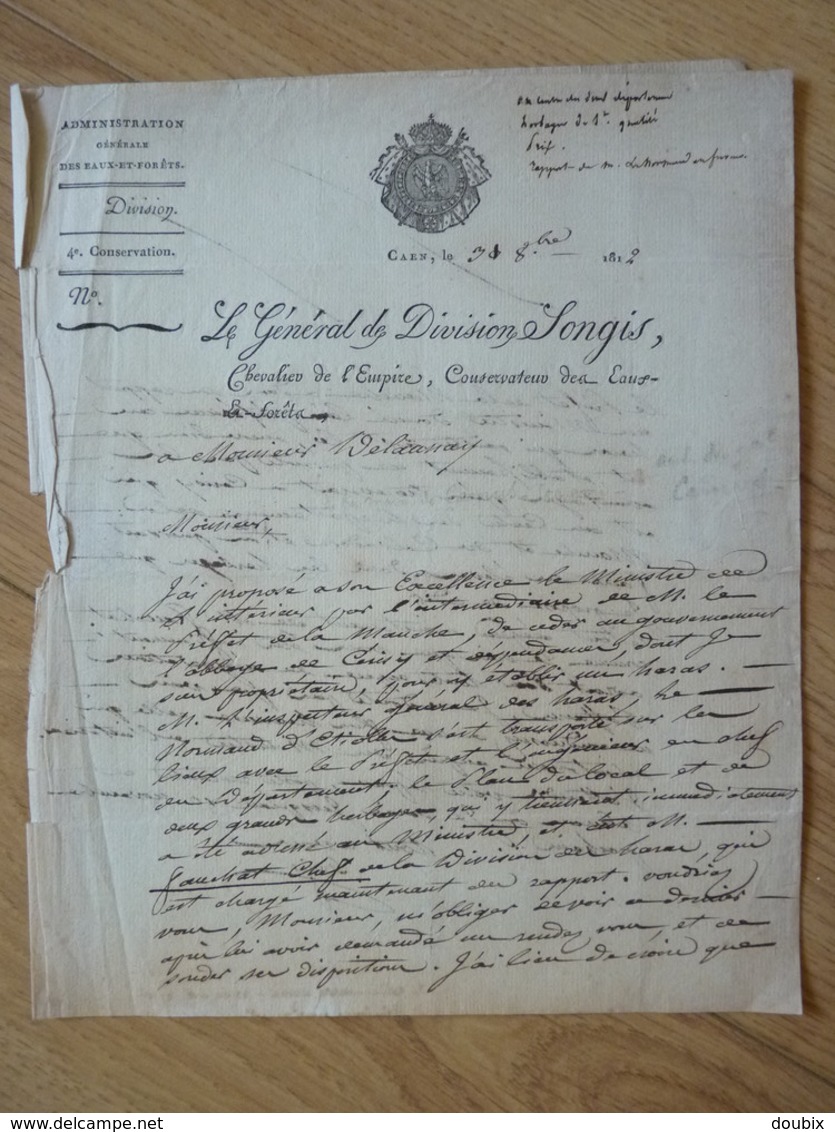 ADMINISTRATION
GÉNÉRALE
DES EAUX-ET-FORÊTS.
Division.
4e. Conservation.
No.
au centre des deux départemens
herbages de 1re. qualité
Prix.
rapport de M. Le Normand en faveur
CAEN, le 31 8.bre 1812
Le Général de Division Songis,
Chevalier de l'Empire, Conservateur des Eaux-
Et-Forêts
a Monsieur Delaunay
Monsieur,
J'ai proposé a son Excellence le Ministre de
L'interieur par l'intermédiaire de M. le
Préfet de la Manche, de ceder au gouvernement
l'abbaye de Cérisy et dépendances, dont je
suis propriétaire, pour y établir un haras. —
M. L'inspecteur général des haras, Le —
Normand d'Etiolles s'est transporté sur les
lieux avec le Préfet et l'ingénieur en chef
du Département. le Plan du local et de
deux grands herbages, qui y tiennent immédiatement
a été adressé au Ministre, et M. —
fauchat Chef de la Division des haras, qui
est chargé maintenant du rapport. voudriez
vous, Monsieur, m'obliger de voir ce dernier —
après lui avoir demandé un rendez vous, et de
sonder ses dispositions. J'ai lieu de croire que
© delcampe.net
doubix